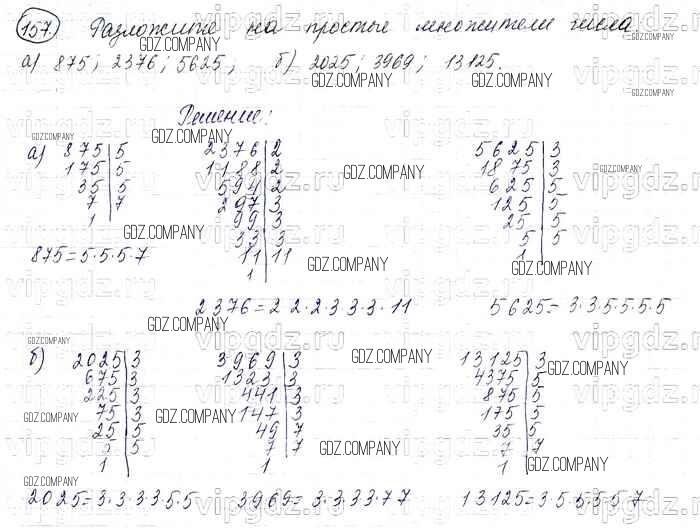 157. Разложите на простые множители числа
а) 875; 2376; 5625; б) 2025; 3969; 13125.
Решение:
а)
875 | 5
175 | 5
35 | 5
7 | 7
1
875=5·5·5·7
2376 | 2
1188 | 2
594 | 2
297 | 3
99 | 3
33 | 3
11 | 11
1
2376=2 2·2·3·3·3·11
5625 | 3
1875 | 3
625 | 5
125 | 5
25 | 5
5 | 5
1
5625=3·3·5·5·5·5
б)
2025 | 3
675 | 3
225 | 3
75 | 3
25 | 5
5 | 5
1
2025=3·3·3·3·5·5
3969 | 3
1323 | 3
441 | 3
147 | 3
49 | 7
7 | 7
1
3969=3·3·3·3·7·7
13125 | 3
4375 | 5
875 | 5
175 | 5
35 | 5
7 | 7
1
13125=3·5·5·5·5·7
GDZ.COMPANY
vipgdz.ru